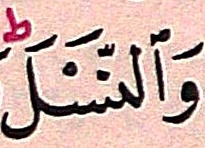 وَٱلنَّسْلَ ۗط